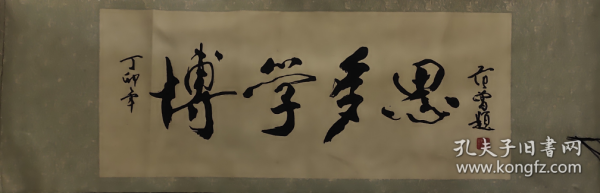 丁卯年
博学多思
范曾题
孔夫子旧书网
www.kongfz.com